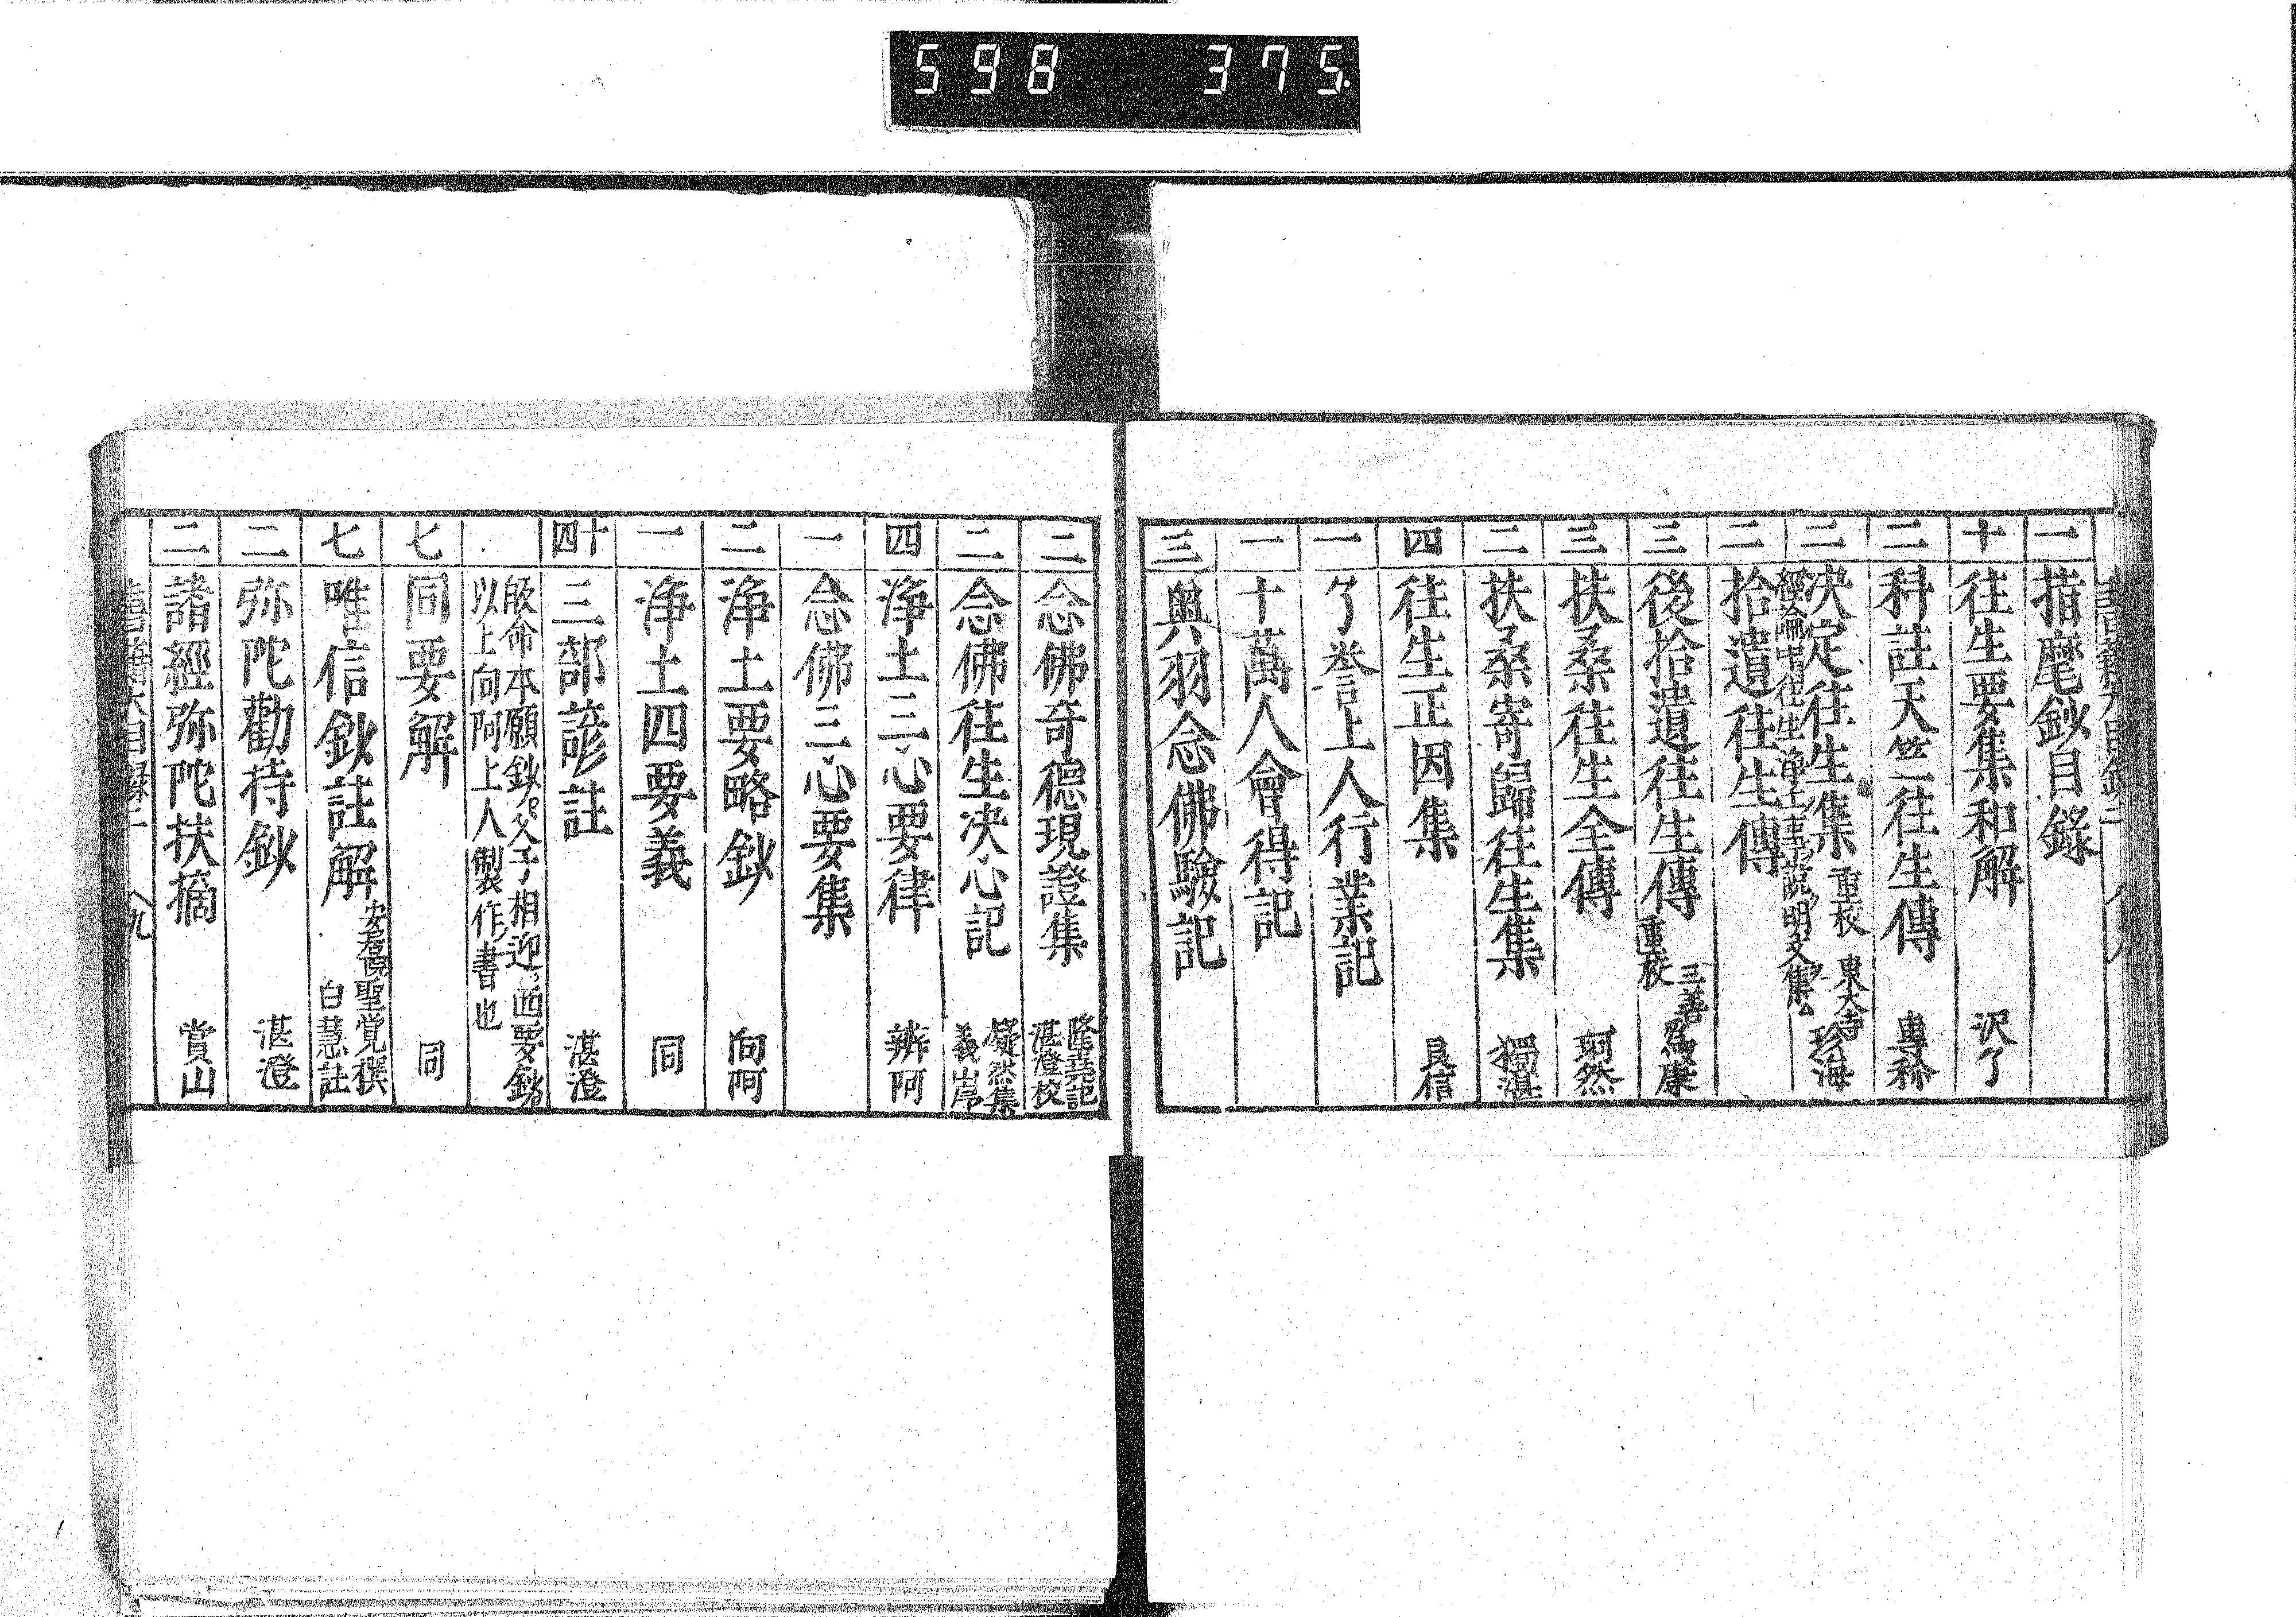 598 375
一 指麾鈔目錄
十 往生要集和解 沢了
三 科註天竺往生傳
三 决定往生集 重校 東大寺 珍海
經論中往生浄土事説明文集
二 拾遺往生傳
三 後拾遺往生傳 重校 三善為康
三 扶桑往生全傳 珂然
二 扶桑寄歸往生集 獨湛
四 往生正因集 良信
一 了誉上人行業記
一 十萬人會得記
三 奥羽念佛驗記
二 念佛奇德現證集 隆堯記 湛澄校
二 念佛往生决心記 凝然集 義山
四 浄土三心要律 辨阿
一 念佛三心要集
二 浄土要略鈔 向阿
一 浄土四要義 同
十四 三部諺註 湛澄
啟命本願鈔父子相迎西要鈔
以上向阿上人製作ノ書也
七 同要解 同
七 唯信鈔註解 安居院聖覚撰 白慧註
二 弥陀勸持鈔 湛澄
二 諸經弥陀扶摘 賞山
書籍大目録二 九